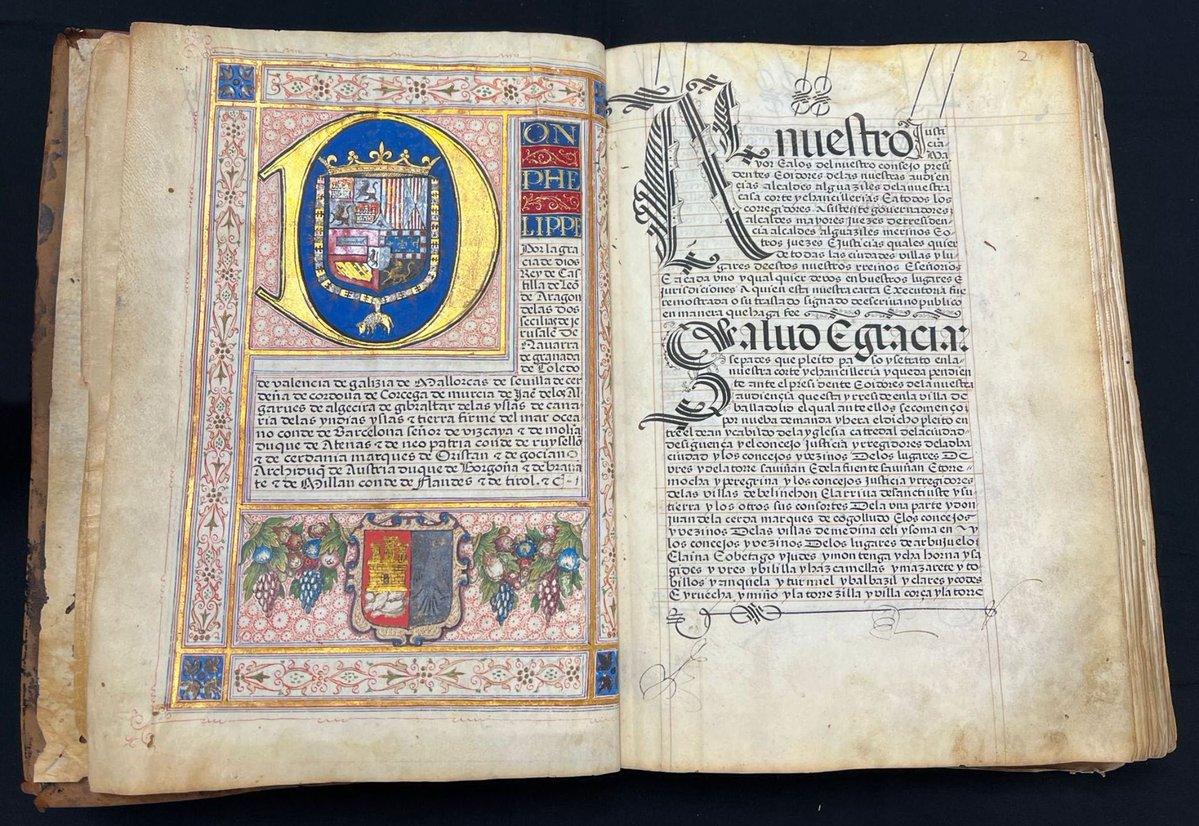 DON
PHE
LIPPE
Por la gra
cia de dios
Rey de Cas
tilla de Leõ
de Aragon
delas dos
secilias de je
rusalẽ De
Navarra
de granada
de Toledo
de valencia de galizia de Mallorcas de sevilla de cer
deña de cordova de Corcega de murcia de Jaẽ delos Al
garves de algecira de gibraltar delas yslas de cana
ria delas yndias yslas & tierra firme del mar ocea
no conde de Barcelona señor de vizcaya & de molina
duque de Atenas & de neo patria conde de ruysellõ
& de cerdania marques de Oristan & de gociano
Archiduq̃ de Austria duque de Borgoña & de brava
te & de Millan conde de flandes & de tirol. & C
2
A nuestro Justi
cia Ma
yor E alos del nuestro consejo presi
dentes E oidores delas nuestras audien
çias alcaldes alguaziles dela nuestra
casa corte y chancillerias E a todos los
corregidores Asistente governadores
alcaldes mayores juezes de residen
cia alcaldes alguaziles merinos E o
tros juezes E justicias quales quier
de todas las ciudades villas y lu
gares destos nuestros rreinos E señorios
E a cada vno y qual quier devos en buestros lugares E
jurisdiciones A quien esta nuestra carta Executoria fue
re mostrada o su traslado signado de escrivano publico
en manera que haga fee
Salud E gracia:
Sepades que pleito paso y se trato en la
nuestra corte y chancilleria y queda pendien
te ante el presidente E oidores dela nuestra
audiencia que esta y rreside en la villa De
balladolid el qual ante ellos se començo
por nueba demanda y hera el dicho pleito en
tre el dean y cabildo dela yglesia catredal dela ciudad
de siguença y el concejo Justicia y rregidores dela dha
ciudad y los concejos y vezinos Delos lugares De
vres y dela torre saviñan E dela fuente saviñan E torre
mocha y peregrina y los concejos Justicia y rregidores
delas villas de belinchon E la rriva de santiuste y su
tierra y los otros sus consortes Dela vna parte y don
juan dela cerda marques de cogolludo E los concejos
y vezinos Delas villas de medina celi y somaen & y
los concejos y vezinos Delos lugares de arbujuelo E
E laina Sobetago y judes y montenga y chahorna y sa
gides y vres y bililla y baiz camellas y mazarete y to
billos y anquela y turmiel y balbazil y clares y codes
E yruecha y miño y la torrezilla y villa corça y la torre